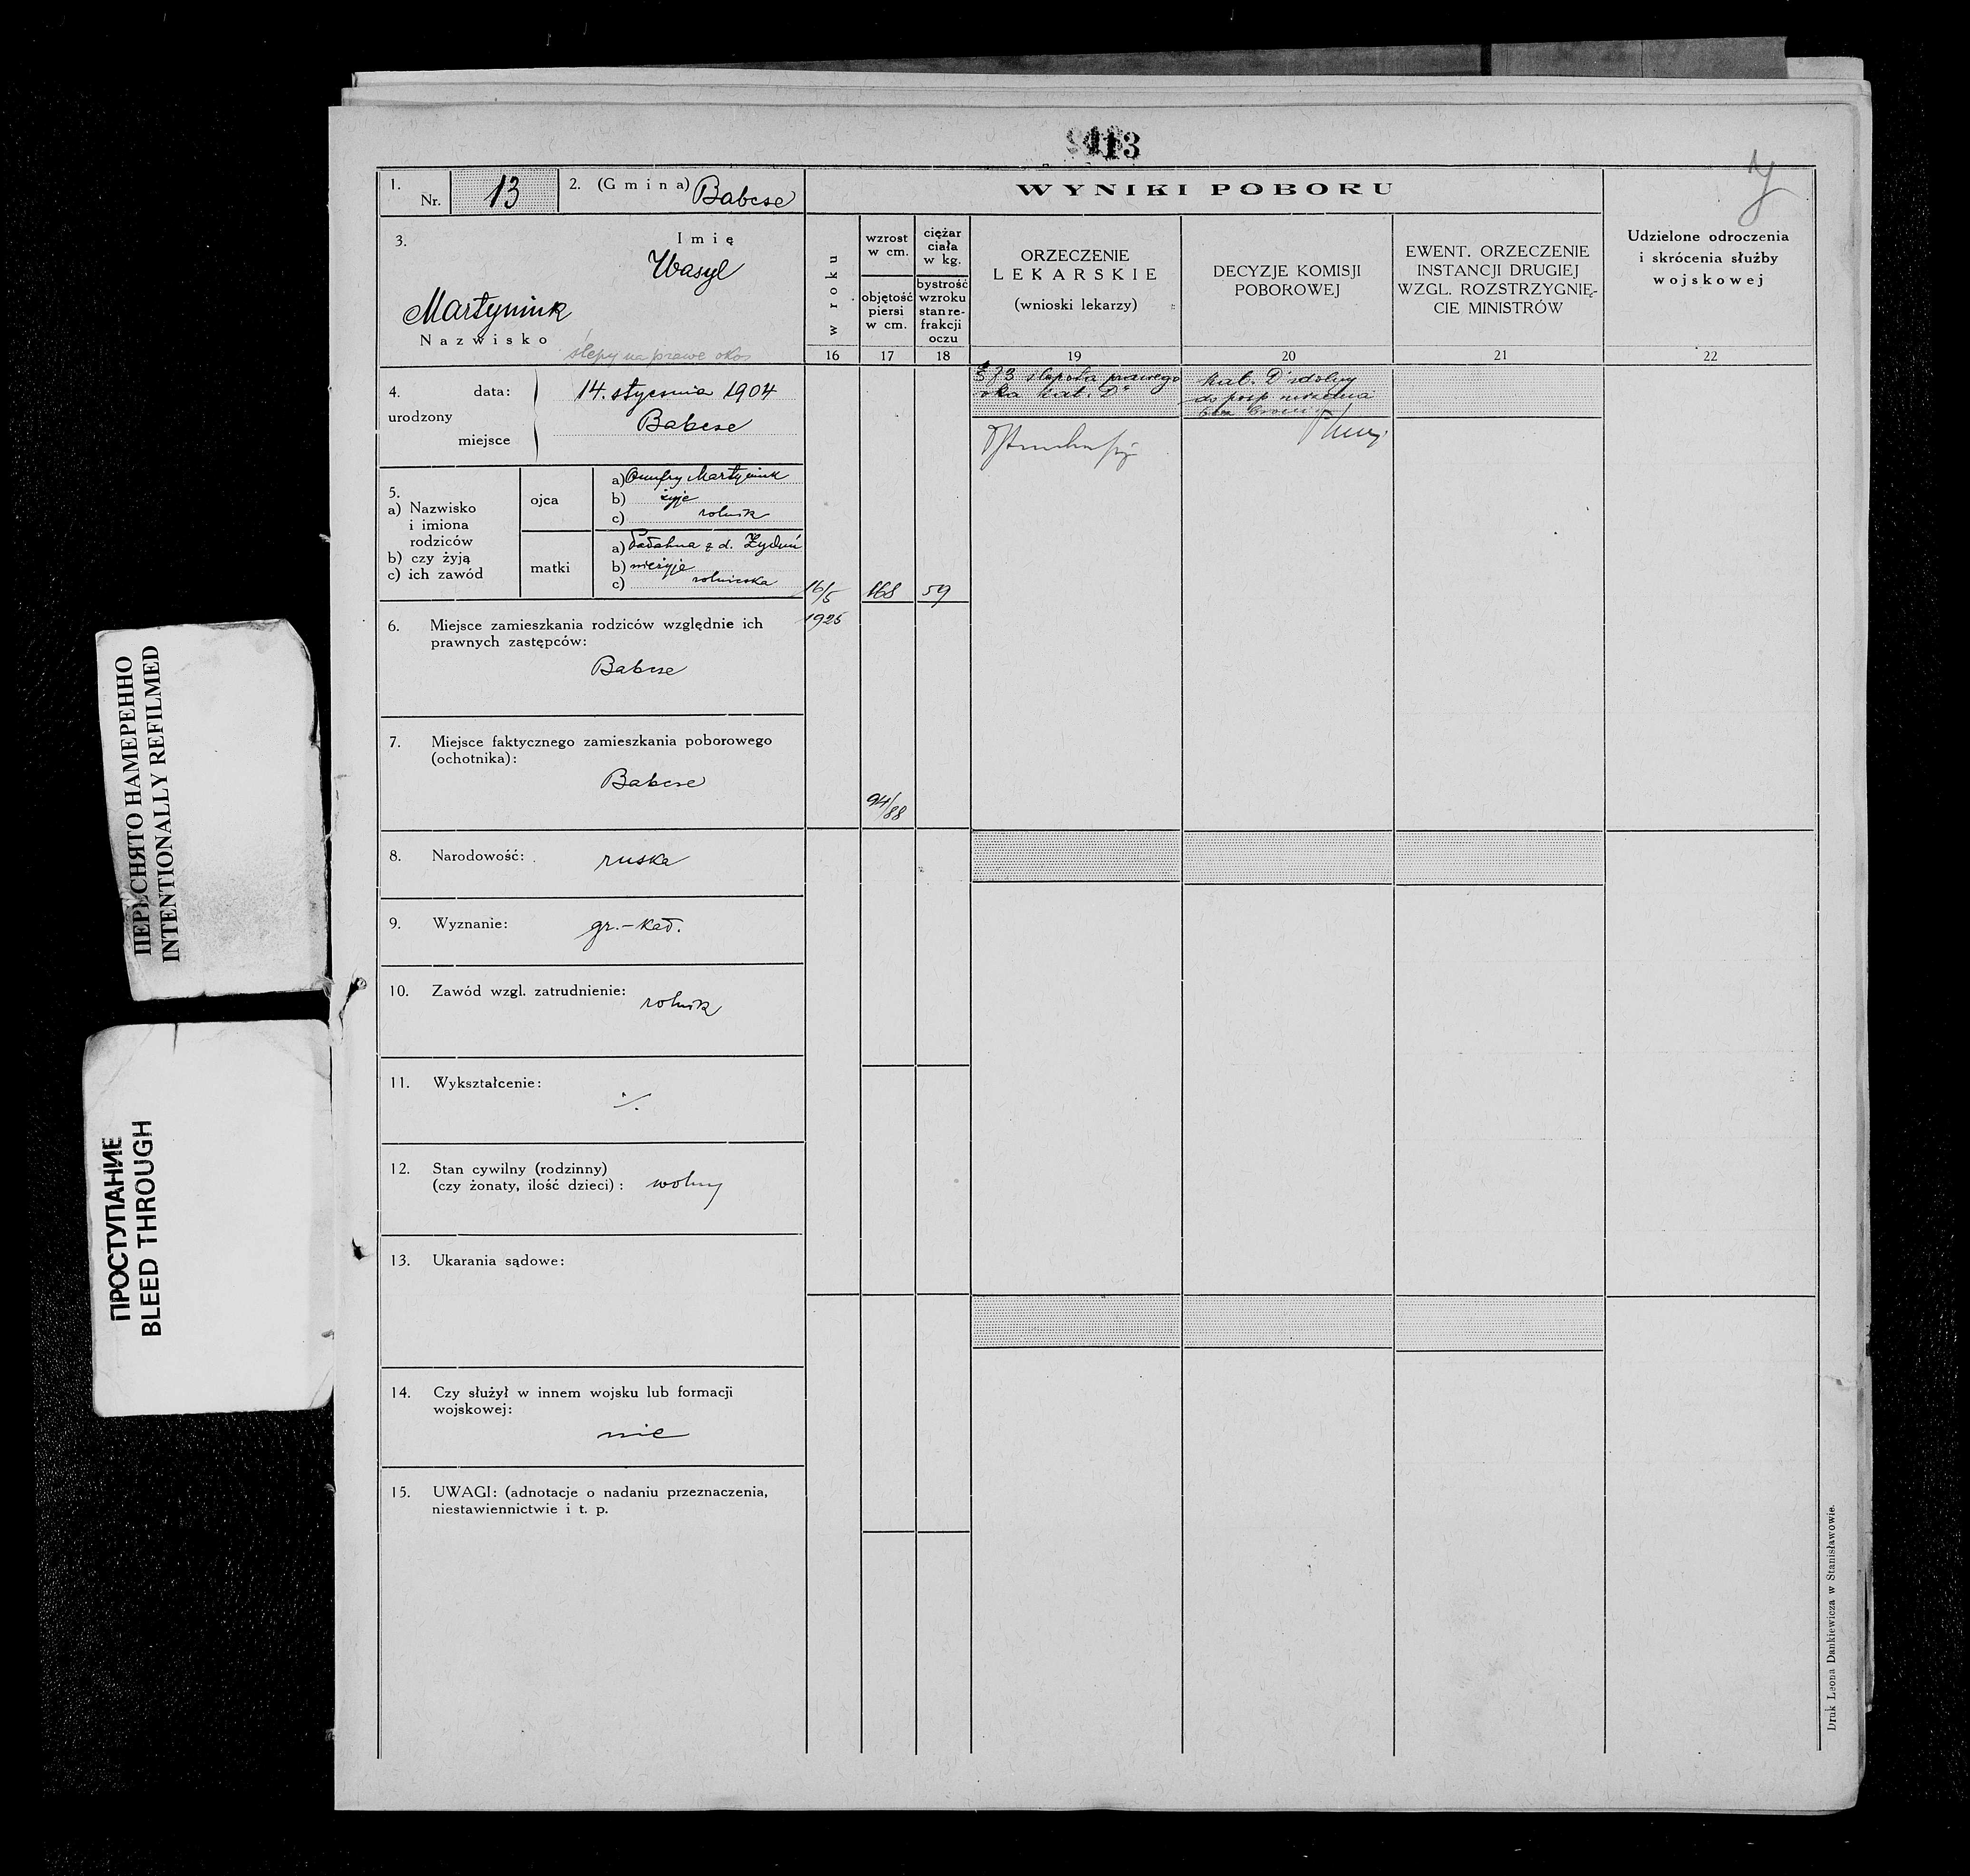 13
1. Nr. 13
2. (Gmina) Babcse
3. Imię
Wasyl
Martyniuk
Nazwisko
ślepy na prawe oko
4. urodzony
data: 14. stycznia 1904
miejsce Babcse
5.
a) Nazwisko
i imiona
rodziców
b) czy żyją
c) ich zawód
ojca
a) Onufry Martyniuk
b) żyje
c) rolnik
matki
a) z d.
b) nieżyje
c) rolniczka
6. Miejsce zamieszkania rodziców względnie ich
prawnych zastępców:
Babcse
7. Miejsce faktycznego zamieszkania poborowego
(ochotnika):
Babcse
8. Narodowość: ruska
9. Wyznanie: gr.-kat.
10. Zawód wzgl. zatrudnienie: rolnik
11. Wykształcenie:
./.
12. Stan cywilny (rodzinny)
(czy żonaty, ilość dzieci): wolny
13. Ukarania sądowe:
14. Czy służył w innem wojsku lub formacji
wojskowej:
nie
15. UWAGI: (adnotacje o nadaniu przeznaczenia,
niestawiennictwie i t. p.
WYNIKI POBORU
w roku
16
16/5
1925
wzrost
w cm.
objętość
piersi
w cm.
17
168
94/88
ciężar
ciała
w kg.
bystrość
wzroku
stan re-
frakcji
oczu
18
59
ORZECZENIE
LEKARSKIE
(wnioski lekarzy)
19
ślepota prawego
oka kat. D"
DECYZJE KOMISJI
POBOROWEJ
20
kat. D" zdolny
do posp. ruszenia
bez broni
EWENT. ORZECZENIE
INSTANCJI DRUGIEJ
WZGL. ROZSTRZYGNIĘ-
CIE MINISTRÓW
21
Udzielone odroczenia
i skrócenia służby
wojskowej
22
Druk Leona Dankiewicza w Stanisławowie.
ПЕРЕСНЯТО НАМЕРЕННО
INTENTIONALLY REFILMED
ПРОСТУПАНИЕ
BLEED THROUGH